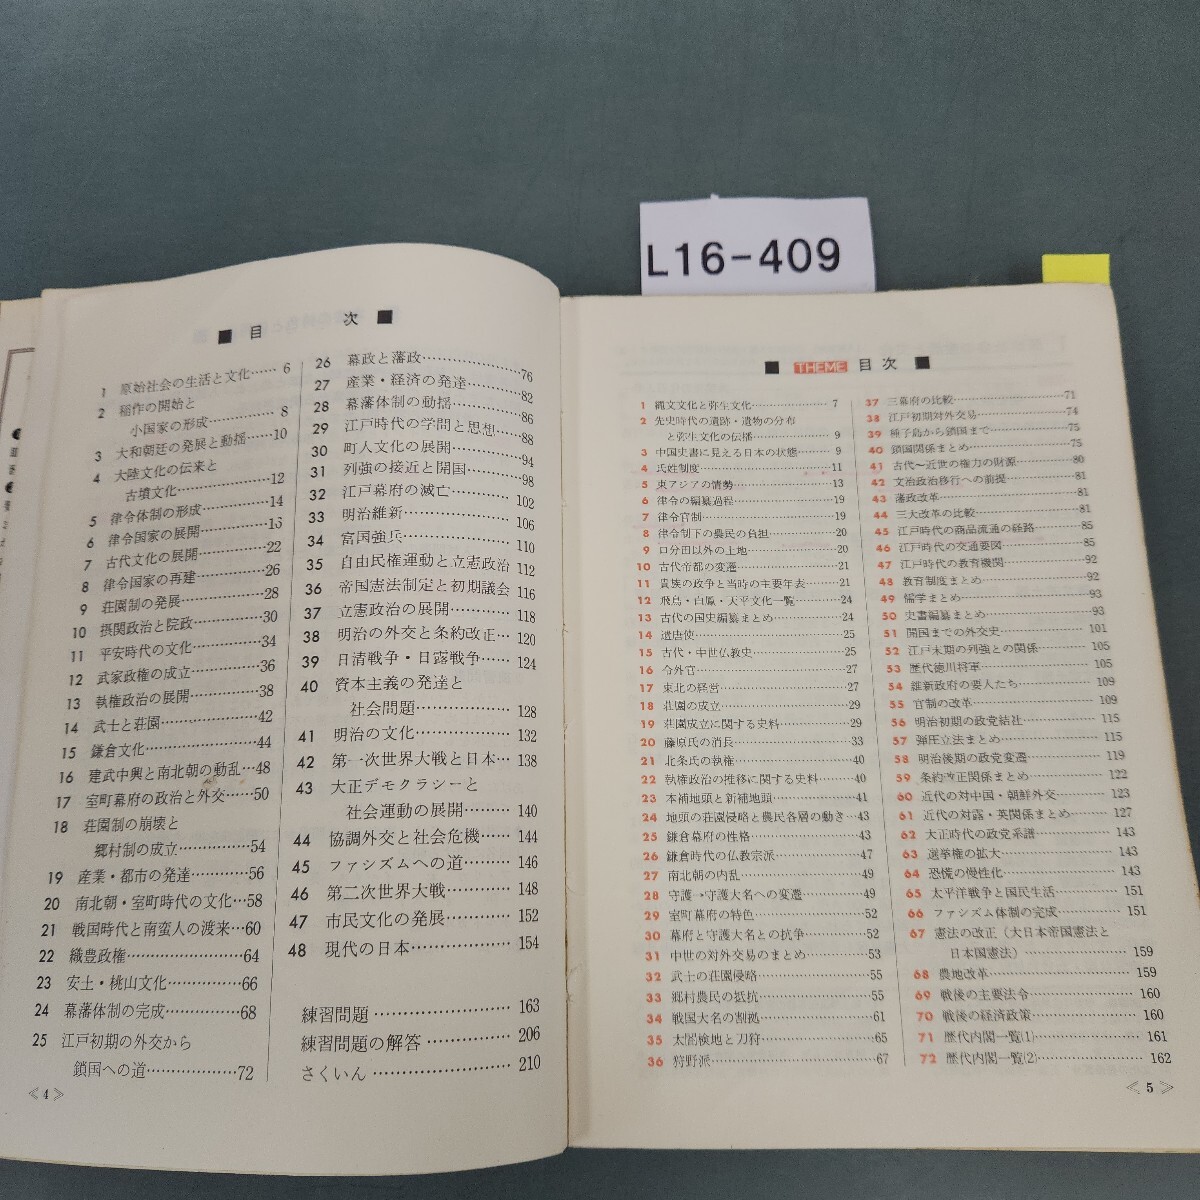 L16-409
■ 目 次 ■
1 原始社会の生活と文化…… 6
2 稲作の開始と
小国家の形成………… 8
3 大和朝廷の発展と動揺……10
4 大陸文化の伝来と
古墳文化……………12
5 律令体制の形成…………14
6 律令国家の展開…………16
7 古代文化の展開…………22
8 律令国家の再建…………26
9 荘園制の発展……………28
10 摂関政治と院政…………30
11 平安時代の文化…………34
12 武家政権の成立…………36
13 執権政治の展開…………38
14 武士と荘園………………42
15 鎌倉文化…………………44
16 建武中興と南北朝の動乱…48
17 室町幕府の政治と外交……50
18 荘園制の崩壊と
郷村制の成立…………54
19 産業・都市の発達…………56
20 南北朝・室町時代の文化…58
21 戦国時代と南蛮人の渡来…60
22 織豊政権…………………64
23 安土・桃山文化……………66
24 幕藩体制の完成……………68
25 江戸初期の外交から
鎖国への道………………72
26 幕政と藩政………………76
27 産業・経済の発達…………82
28 幕藩体制の動揺…………86
29 江戸時代の学問と思想……88
30 町人文化の展開…………94
31 列強の接近と開国…………98
32 江戸幕府の滅亡…………102
33 明治維新………………106
34 富国強兵………………110
35 自由民権運動と立憲政治 112
36 帝国憲法制定と初期議会 116
37 立憲政治の展開…………118
38 明治の外交と条約改正… 120
39 日清戦争・日露戦争…… 124
40 資本主義の発達と
社会問題……………… 128
41 明治の文化……………… 132
42 第一次世界大戦と日本… 138
43 大正デモクラシーと
社会運動の展開……… 140
44 協調外交と社会危機…… 144
45 ファシズムへの道……… 146
46 第二次世界大戦………… 148
47 市民文化の発展………… 152
48 現代の日本……………… 154
練習問題………………………163
練習問題の解答………………206
さくいん………………………210
≪ 4 ≫
■ THEME 目 次 ■
1 縄文文化と弥生文化………… 7
2 先史時代の遺跡・遺物の分布
と弥生文化の伝播………… 9
3 中国史書に見える日本の状態…… 9
4 氏姓制度…………………11
5 東アジアの情勢……………13
6 律令の編纂過程……………19
7 律令官制…………………19
8 律令制下の農民の負担…………20
9 口分田以外の土地…………20
10 古代帝都の変遷……………21
11 貴族の政争と当時の主要年表……21
12 飛鳥・白鳳・天平文化一覧………24
13 古代の国史編纂まとめ…………24
14 遣唐使……………………25
15 古代・中世仏教史……………25
16 令外官……………………27
17 東北の経営…………………27
18 荘園の成立…………………29
19 荘園成立に関する史料…………29
20 藤原氏の消長………………33
21 北条氏の執権………………40
22 執権政治の推移に関する史料……40
23 本補地頭と新補地頭……………41
24 地頭の荘園侵略と農民各層の動き…43
25 鎌倉幕府の性格………………43
26 鎌倉時代の仏教宗派……………47
27 南北朝の内乱…………………49
28 守護→守護大名への変遷…………49
29 室町幕府の特色………………52
30 幕府と守護大名との抗争…………52
31 中世の対外交易のまとめ…………53
32 武士の荘園侵略………………55
33 郷村農民の抵抗………………55
34 戦国大名の割拠………………61
35 太閤検地と刀狩………………65
36 狩野派………………………67
37 三幕府の比較…………………71
38 江戸初期対外交易………………74
39 種子島から鎖国まで……………75
40 鎖国関係まとめ………………75
41 古代〜近世の権力の財源…………80
42 文治政治移行への前提……………81
43 藩政改革……………………81
44 三大改革の比較………………81
45 江戸時代の商品流通の経路………85
46 江戸時代の交通要図……………85
47 江戸時代の教育機関……………92
48 教育制度まとめ………………92
49 儒学まとめ…………………93
50 史書編纂まとめ………………93
51 開国までの外交史……………101
52 江戸末期の列強との関係…………105
53 歴代徳川将軍………………105
54 維新政府の要人たち……………109
55 官制の改革…………………109
56 明治初期の政党結社……………115
57 弾圧立法まとめ………………115
58 明治後期の政党変遷……………119
59 条約改正関係まとめ……………122
60 近代の対中国・朝鮮外交…………123
61 近代の対露・英関係まとめ………127
62 大正時代の政党系譜……………143
63 選挙権の拡大…………………143
64 恐慌の慢性化…………………143
65 太平洋戦争と国民生活……………151
66 ファシズム体制の完成……………151
67 憲法の改正（大日本帝国憲法と
日本国憲法）………………159
68 農地改革……………………159
69 戦後の主要法令………………160
70 戦後の経済政策………………160
71 歴代内閣一覧(1)………………161
72 歴代内閣一覧(2)………………162
≪ 5 ≫